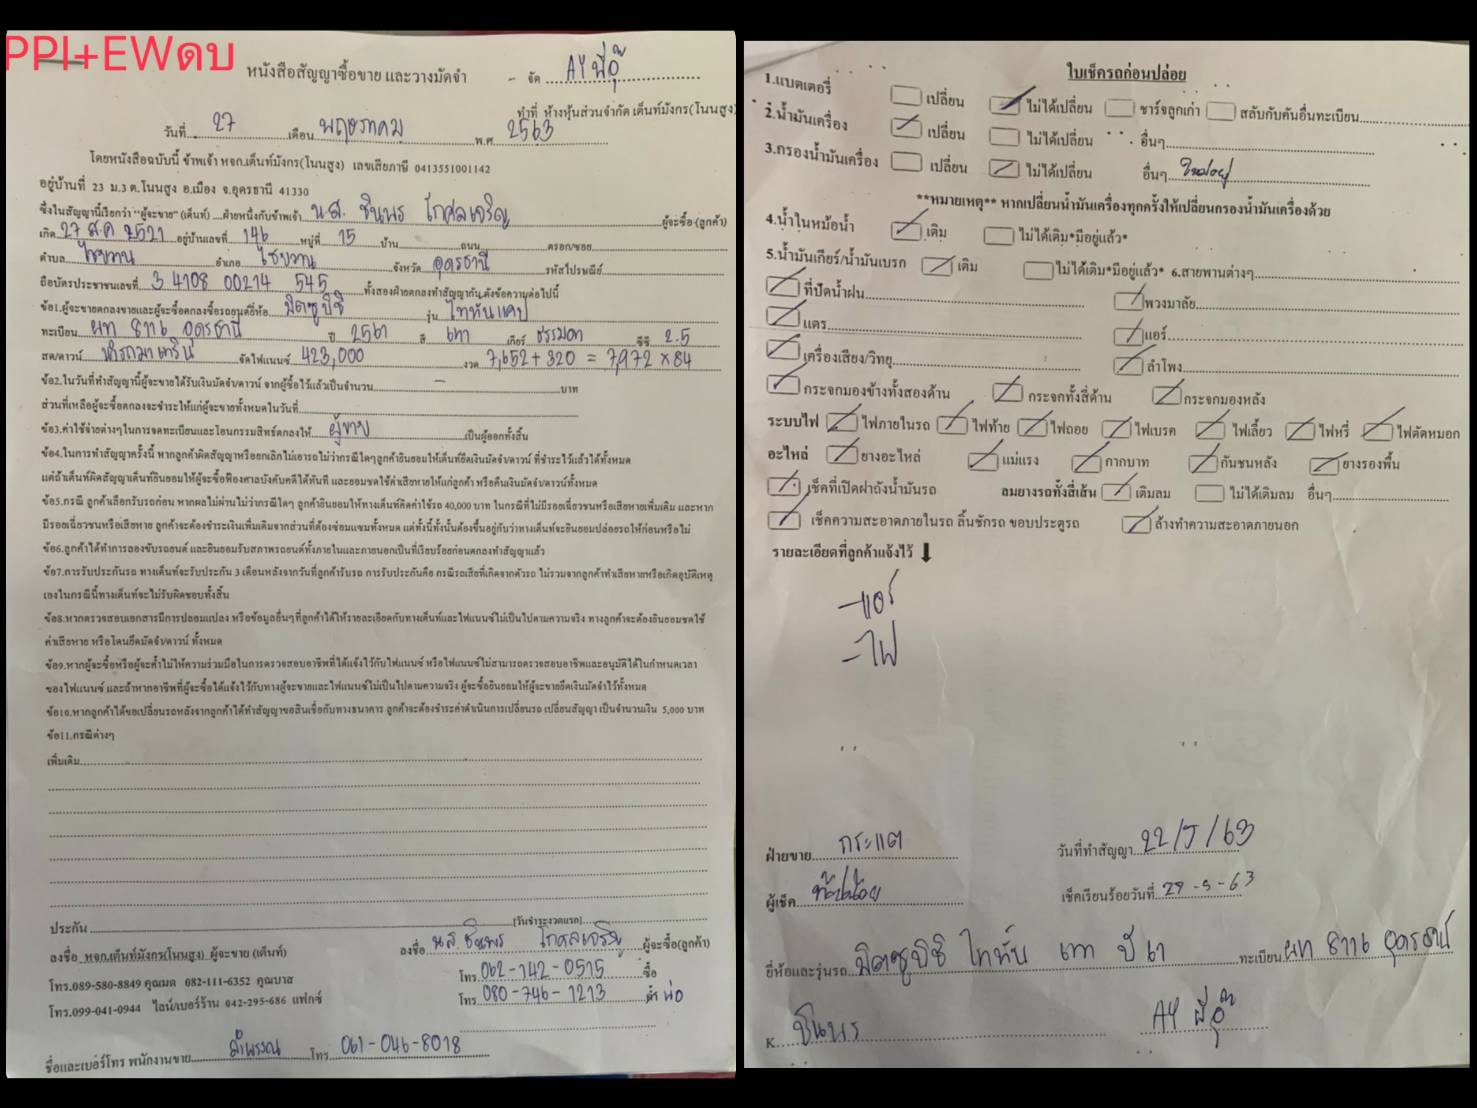 PPI+EWดบ
หนังสือสัญญาซื้อขาย และวางมัดจำ
จัด AY พี่อุ๊
ทำที่ ห้างหุ้นส่วนจำกัด เต็นท์มังกร(โนนสูง)
วันที่ 27 เดือน พฤษภาคม พ.ศ 2563
โดยหนังสือฉบับนี้ ข้าพเจ้า หจก.เต็นท์มังกร(โนนสูง) เลขเสียภาษี 0413551001142
อยู่บ้านที่ 23 ม.3 ต.โนนสูง อ.เมือง จ.อุดรธานี 41330
ซึ่งในสัญญานี้เรียกว่า "ผู้จะขาย" (เต็นท์) ฝ่ายหนึ่งกับข้าพเจ้า น.ส. ชินพร โกศลเจริญ ผู้จะซื้อ (ลูกค้า)
เกิด 27 ส.ค 2521 อยู่บ้านเลขที่ 146 หมู่ที่ 15 บ้าน ถนน ตรอก/ซอย
ตำบล ไชยวาน อำเภอ ไชยวาน จังหวัด อุดรธานี รหัสไปรษณีย์
ถือบัตรประชาชนเลขที่ 3 4108 00214 545 ทั้งสองฝ่ายตกลงทำสัญญากัน ดังข้อความต่อไปนี้
ข้อ1.ผู้จะขายตกลงขายและผู้จะซื้อตกลงซื้อรถยนต์ยี่ห้อ มิตซูบิชิ รุ่น ไททันแคป
ทะเบียน ผท 8116 อุดรธานี ปี 2561 สี เทา เกียร์ ธรรมดา ซีซี 2.5
สด/ดาวน์ จัดไฟแนนซ์ 423,000 งวด 7,652+320 = 7,972 x 84
ข้อ2.ในวันที่ทำสัญญานี้ผู้จะขายได้รับเงินมัดจำ/ดาวน์ จากผู้ซื้อไว้แล้วเป็นจำนวน - บาท
ส่วนที่เหลือผู้จะซื้อตกลงจะชำระให้แก่ผู้จะขายทั้งหมดในวันที่
ข้อ3.ค่าใช้จ่ายต่างๆในการจดทะเบียนและโอนกรรมสิทธิ์ตกลงให้ ผู้ขาย เป็นผู้ออกทั้งสิ้น
ข้อ4.ในการทำสัญญาครั้งนี้ หากลูกค้าผิดสัญญาหรือยกเลิกไม่เอารถไม่ว่ากรณีใดๆลูกค้ายินยอมให้เต็นท์ยึดเงินมัดจำ/ดาวน์ ที่ชำระไว้แล้วได้ทั้งหมด
แต่ถ้าเต็นท์ผิดสัญญาเต็นท์ยินยอมให้ผู้จะซื้อฟ้องศาลบังคับคดีได้ทันที และยอมชดใช้ค่าเสียหายให้แก่ลูกค้า หรือคืนเงินมัดจำ/ดาวน์ทั้งหมด
ข้อ5.กรณี ลูกค้าเลือกรับรถก่อน หากผลไม่ผ่านไม่ว่ากรณีใดๆ ลูกค้ายินยอมให้ทางเต็นท์คิดค่าใช้รถ 40,000 บาท ในกรณีที่ไม่มีรอยเฉี่ยวชนหรือเสียหายเพิ่มเติม และหาก
มีรอยเฉี่ยวชนหรือเสียหาย ลูกค้าจะต้องชำระเงินเพิ่มเติมจากส่วนที่ต้องซ่อมแซมทั้งหมด แต่ทั้งนี้ทั้งนั้นต้องขึ้นอยู่กับว่าทางเต็นท์จะยินยอมปล่อยรถให้ก่อนหรือไม่
ข้อ6.ลูกค้าได้ทำการลองขับรถยนต์ และยินยอมรับสภาพรถยนต์ทั้งภายในและภายนอกเป็นที่เรียบร้อยก่อนตกลงทำสัญญาแล้ว
ข้อ7.การรับประกันรถ ทางเต็นท์จะรับประกัน 3 เดือนหลังจากวันที่ลูกค้ารับรถ การรับประกันคือ กรณีรถเสียที่เกิดจากตัวรถ ไม่รวมจากลูกค้าทำเสียหายหรือเกิดอุบัติเหตุ
เองในกรณีนี้ทางเต็นท์จะไม่รับผิดชอบทั้งสิ้น
ข้อ8.หากตรวจสอบเอกสารมีการปลอมแปลง หรือข้อมูลอื่นๆที่ลูกค้าได้ให้รายละเอียดกับทางเต็นท์และไฟแนนซ์ไม่เป็นไปตามความจริง ทางลูกค้าจะต้องยินยอมชดใช้
ค่าเสียหาย หรือโดนยึดมัดจำ/ดาวน์ ทั้งหมด
ข้อ9.หากผู้จะซื้อหรือผู้จะค้ำไม่ให้ความร่วมมือในการตรวจสอบอาชีพที่ได้แจ้งไว้กับไฟแนนซ์ หรือไฟแนนซ์ไม่สามารถตรวจสอบอาชีพและอนุมัติได้ในกำหนดเวลา
ของไฟแนนซ์ และถ้าหากอาชีพที่ผู้จะซื้อได้แจ้งไว้กับทางผู้จะขายและไฟแนนซ์ไม่เป็นไปตามความจริง ผู้จะซื้อยินยอมให้ผู้จะขายยึดเงินมัดจำไว้ทั้งหมด
ข้อ10.หากลูกค้าได้ขอเปลี่ยนรถหลังจากลูกค้าได้ทำสัญญาขอสินเชื่อกับทางธนาคาร ลูกค้าจะต้องชำระค่าดำเนินการเปลี่ยนรถ เปลี่ยนสัญญา เป็นจำนวนเงิน 5,000 บาท
ข้อ11.กรณีต่างๆ
เพิ่มเติม
ประกัน (วันชำระงวดแรก)
ลงชื่อ หจก.เต็นท์มังกร(โนนสูง) ผู้จะขาย (เต็นท์) ลงชื่อ น.ส. ชินพร โกศลเจริญ ผู้จะซื้อ(ลูกค้า)
โทร.089-580-8849 คุณมด 082-111-6352 คุณบาส โทร. 062-142-0515 ซื้อ
โทร.099-041-0944 ไลน์/เบอร์ร้าน 042-295-686 แฟกซ์ โทร. 080-746-1213 ค้ำ พ่อ
ชื่อและเบอร์โทร พนักงานขาย ลำพรรณ โทร 061-046-8018
ใบเช็ครถก่อนปล่อย
1.แบตเตอรี่ เปลี่ยน ไม่ได้เปลี่ยน ชาร์จลูกเก่า สลับกับคันอื่นทะเบียน
2.น้ำมันเครื่อง เปลี่ยน ไม่ได้เปลี่ยน อื่นๆ
3.กรองน้ำมันเครื่อง เปลี่ยน ไม่ได้เปลี่ยน อื่นๆ
**หมายเหตุ** หากเปลี่ยนน้ำมันเครื่องทุกครั้งให้เปลี่ยนกรองน้ำมันเครื่องด้วย
4.น้ำในหม้อน้ำ เติม ไม่ได้เติม*มีอยู่แล้ว*
5.น้ำมันเกียร์/น้ำมันเบรก เติม ไม่ได้เติม*มีอยู่แล้ว* 6.สายพานต่างๆ
ที่ปัดน้ำฝน พวงมาลัย
แตร แอร์
เครื่องเสียง/วิทยุ ลำโพง
กระจกมองข้างทั้งสองด้าน กระจกทั้งสี่ด้าน กระจกมองหลัง
ระบบไฟ ไฟภายในรถ ไฟท้าย ไฟถอย ไฟเบรค ไฟเลี้ยว ไฟหรี่ ไฟตัดหมอก
อะไหล่ ยางอะไหล่ แม่แรง กากบาท กันชนหลัง ยางรองพื้น
เช็คที่เปิดฝาถังน้ำมันรถ ลมยางรถทั้งสี่เส้น เติมลม ไม่ได้เติมลม อื่นๆ
เช็คความสะอาดภายในรถ ลิ้นชักรถ ขอบประตูรถ ล้างทำความสะอาดภายนอก
รายละเอียดที่ลูกค้าแจ้งไว้
-แอร์
-ไฟ
ฝ่ายขาย กระแต วันที่ทำสัญญา 22/5/63
ผู้เช็ค เช็คเรียบร้อยวันที่ 29-5-63
ยี่ห้อและรุ่นรถ มิตซูบิชิ ไททัน เทา ปี 61 ทะเบียน ผท 8116 อุดรธานี
K ชินพร AY พี่อุ๊